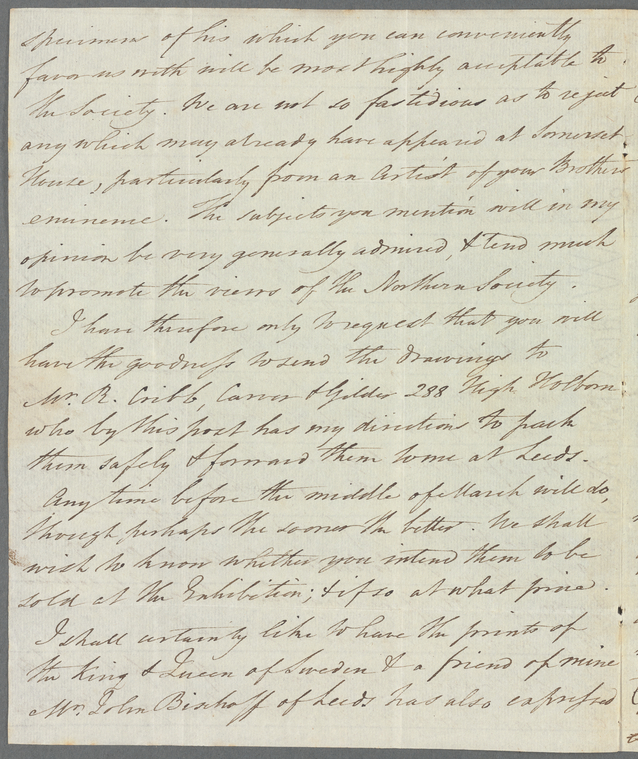 specimens of his which you can conveniently
favor us with will be most highly acceptable to
the Society. We are not so fastidious as to reject
any which may already have appeared at Somerset
House, particularly from an Artist of your Brothers
eminence. The subjects you mention will in my
opinion be very generally admired, & tend much
to promote the views of the Northern Society.
I have therefore only to request that you will
have the goodness to send the drawings to
Mr. R. Cribb, Carver & Gilder 288 High Holborn
who by this post has my directions to pack
them safely & forward them to me at Leeds.
Any time before the middle of March will do,
though perhaps the sooner the better. We shall
wish to know whether you intend them to be
sold at the Exhibition; & if so at what price.
I shall certainly like to have the prints of
the King & Queen of Sweden & a friend of mine
Mr. John Bischoff of Leeds has also expressed